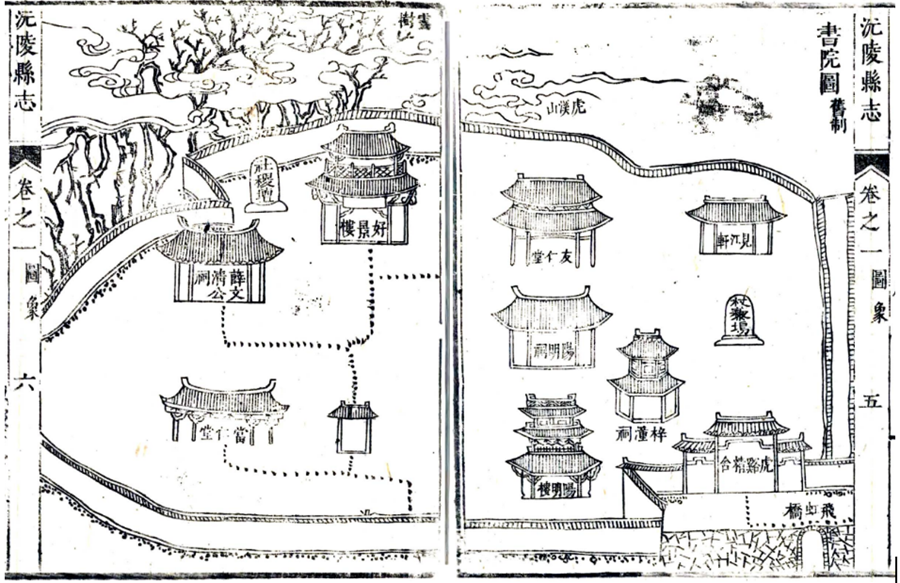 沅陵縣志
卷之一
圖象
五
書院圖
舊制
虎溪山
見江軒
友仁堂
陽明祠
梓潼祠
陽明樓
虎谿
台
飛
橋
靈樹
好景樓
薛文清公祠
當仁堂
沅陵縣志
卷之一
圖象
六